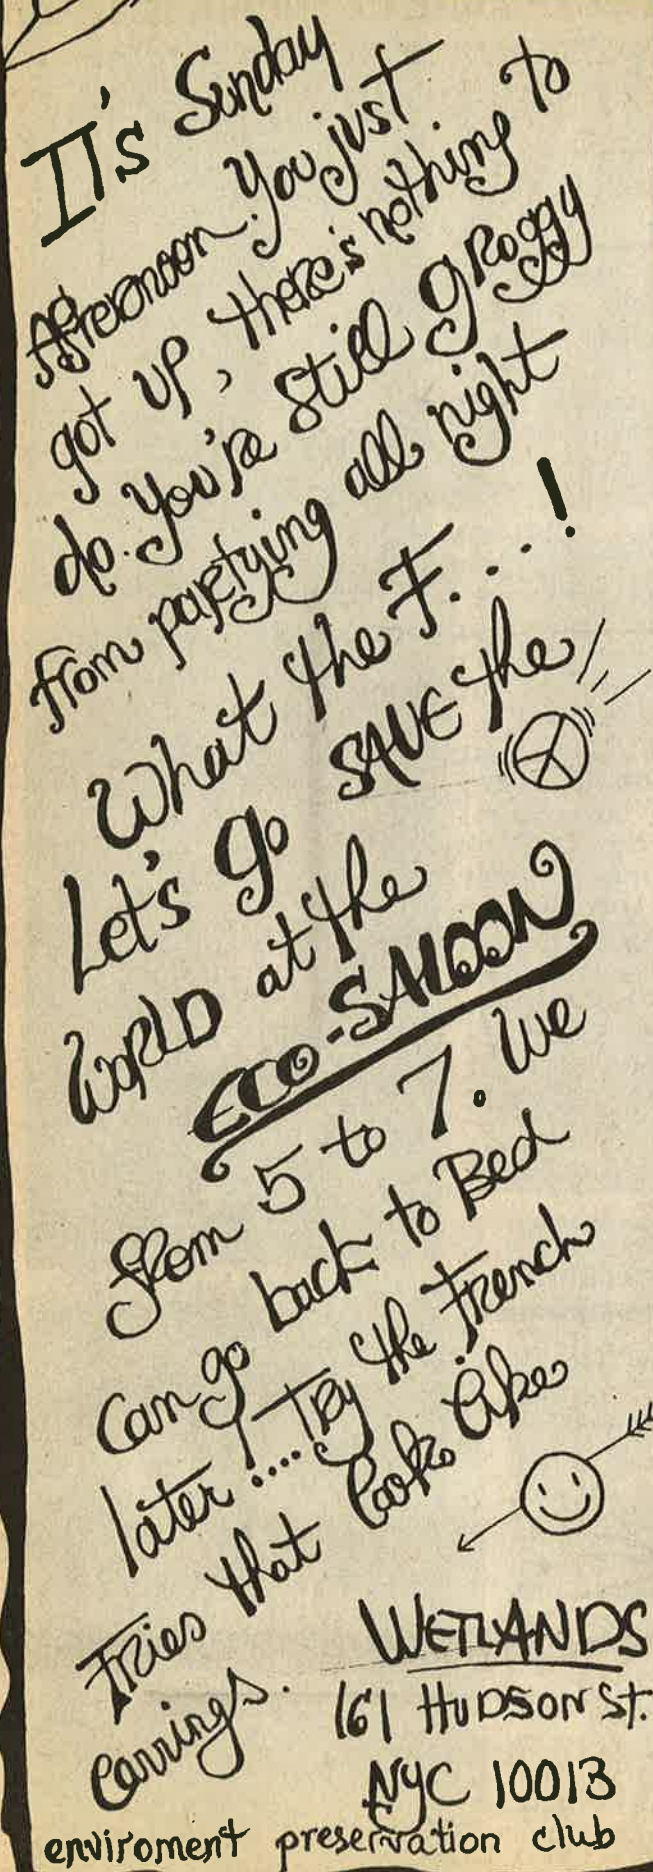 It's Sunday
Afternoon. You just
got up, there's nothing to
do. You're still groggy
from partying all night
What the F....!
Let's go SAVE the
WORLD at the
ECO-SALOON
from 5 to 7. We
can go back to Bed
later!....Try the French
Fries that look like
earrings.
WETLANDS
161 HUDSON St.
NYC 10013
enviroment preservation club